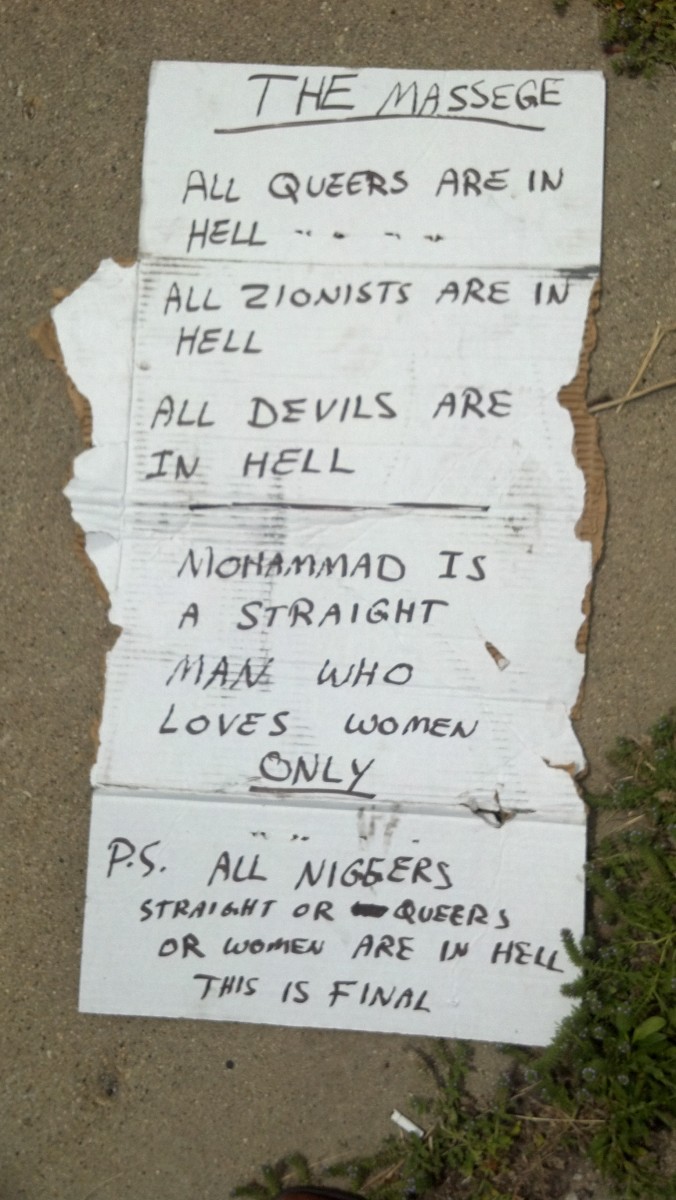 THE MASSEGE
ALL QUEERS ARE IN
HELL
ALL ZIONISTS ARE IN
HELL
ALL DEVILS ARE
IN HELL
MOHAMMAD IS
A STRAIGHT
MAN WHO
LOVES WOMEN
ONLY
P.S. ALL NIGGERS
STRAIGHT OR QUEERS
OR WOMEN ARE IN HELL
THIS IS FINAL